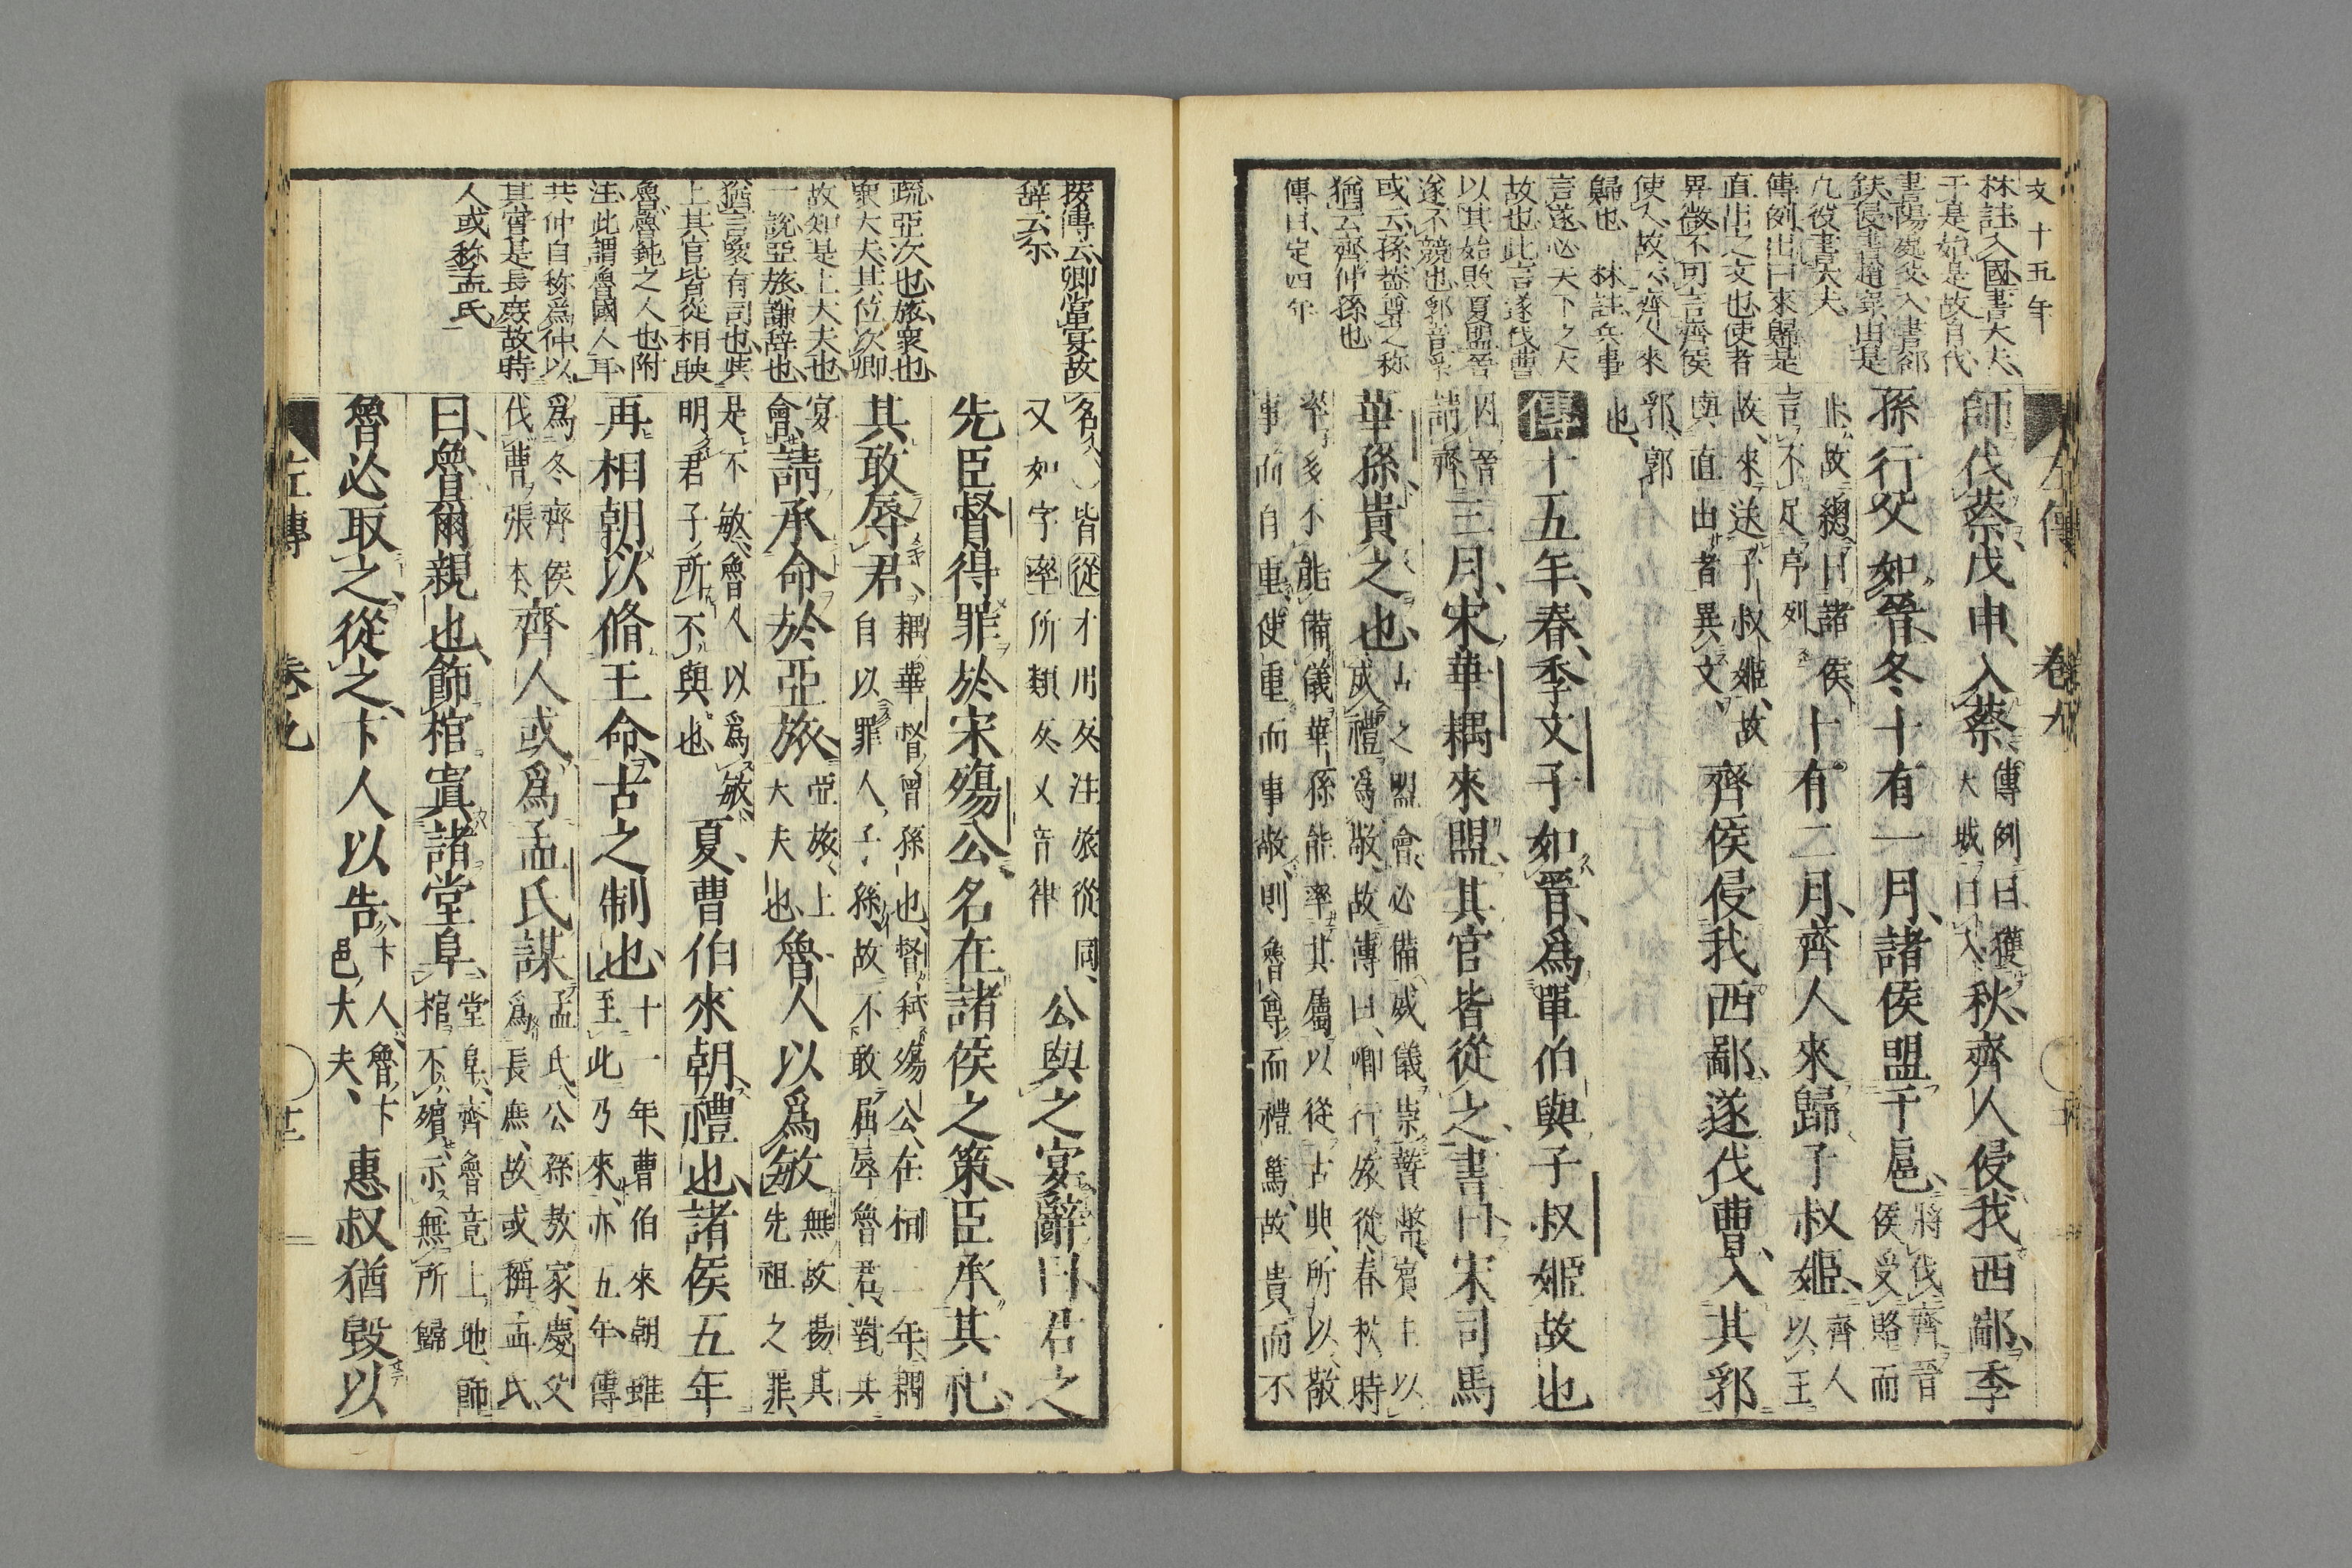 文十五年
林註入國書大夫
于是始是故自代
書陽處父入書郤
缺侵書趙穿由是
凡役書大夫
傳例出曰來歸是
直出之文也使者
異敬不可言齊侯
使人故云齊人來
歸也 林註兵事
言遂必天下之大
故也此言遂伐曹
以其始敗夏盟晉
遂不競也郛音孚
或云孫蓋尊之称
猶云齊仲孫也
傳曰定四年
左傳 卷九
師伐蔡戊申入蔡傳例曰獲大城曰入秋齊人侵我西鄙季
孫行父如晉冬十有一月諸侯盟于扈將伐齊晉侯受賂而
止故總曰諸侯言不足序列十有二月齊人來歸子叔姬齊人以王
故來送子叔姬故與直出者異文齊侯侵我西鄙遂伐曹入其郛
郛郭也
傳十五年春季文子如晉爲單伯與子叔姬故也
因晉請齊三月宋華耦來盟其官皆從之書曰宋司馬
華孫貴之也古之盟會必備威儀崇贄幣賓主以成禮爲敬故傳曰卿行旅從春秋時
率多不能備儀華孫能率其屬以從古典所以敬事而自重使重而事敬則魯尊而禮篤故貴而不
按傳云卿當宴故
辞云尒
疏亞次也旅衆也
衆大夫其位次卿
故知是上大夫也
一說亞旅謙辞也
猶言衆有司也與
上其官皆從相映
魯魯鈍之人也附
注此謂魯國人耳
共仲自称爲仲以
其嘗是長庶故時
人或称孟氏
名皆從才用反注旅從同又如字率所類反又音律公與之宴辭曰君之
先臣督得罪於宋殤公名在諸侯之策臣承其祀
其敢辱君耦華督曾孫也督弑殤公在桓二年耦自以罪人子孫故不敢屈辱魯君對共
宴會請承命於亞旅亞旅上大夫也魯人以爲敏無故揚其先祖之罪
是不敏魯人以爲敏明君子所不與也夏曹伯來朝禮也諸侯五年
再相朝以脩王命古之制也十一年曹伯來朝雖至此乃來亦五年傳
爲冬齊侯伐曹張本齊人或爲孟氏謀孟氏公孫敖家慶父爲長庶故或稱孟氏
曰魯爾親也飾棺寘諸堂阜堂阜齊魯竟上地飾棺不殯示無所歸
魯必取之從之卞人以告卞人魯卞邑大夫惠叔猶毀以
左傳 卷九